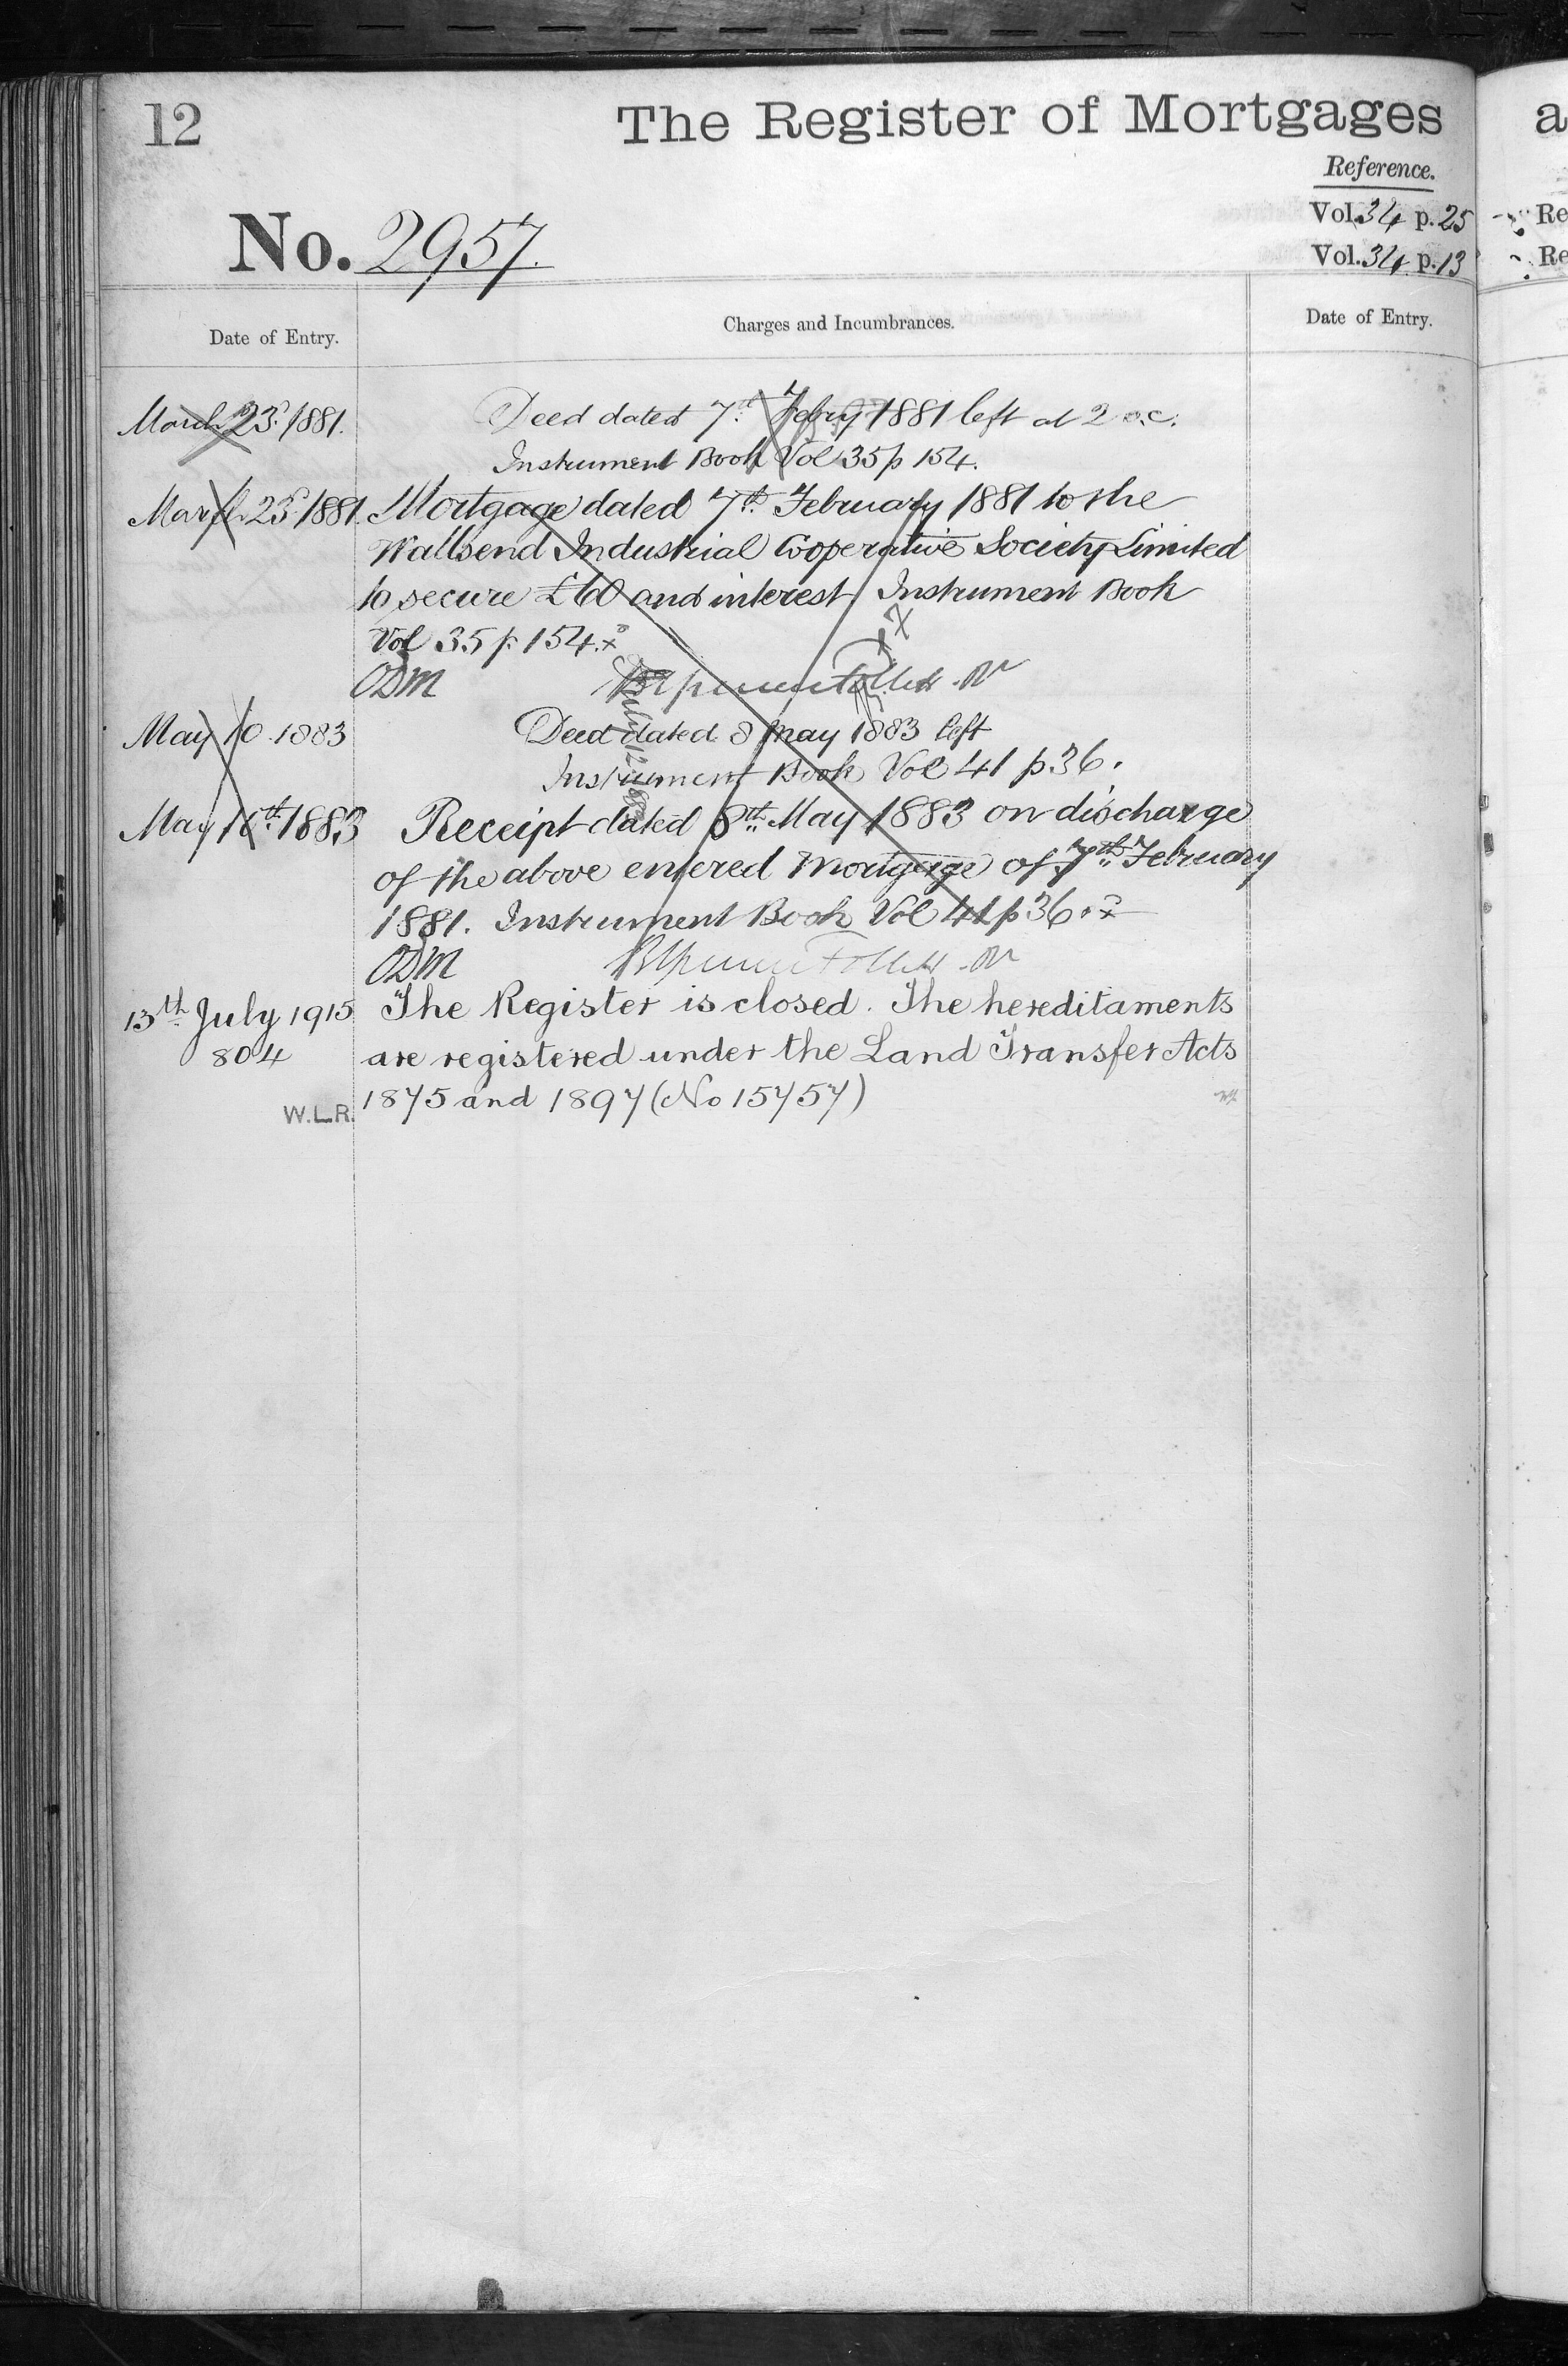 12
The Register of Mortgages
a
Reference.
Vol. 34 p. 25
Re
No. 2957.
Vol. 34 p. 13
Re
Date of Entry.
Charges and Incumbrances.
Date of Entry.
March 23 1881.
Deed dated 7th Febry 1881 left at 2 o.c.
Instrument Book Vol 35 p 154.
March 23 1881.
Mortgage dated 7th February 1881 to the
Wallsend Industrial Cooperative Society Limited
to secure £60 and interest Instrument Book
Vol 35 p 154. x
ODM
May 10 1883
Deed dated 8 May 1883 left
Instrument Book Vol 41 p 36.
May 10th 1883
Receipt dated 8th May 1883 on discharge
of the above entered Mortgage of 7th February
1881. Instrument Book Vol 41 p 36. x
ODM
13th July 1915
The Register is closed. The hereditaments
804
are registered under the Land Transfer Acts
W.L.R.
1875 and 1897 (No 15757)